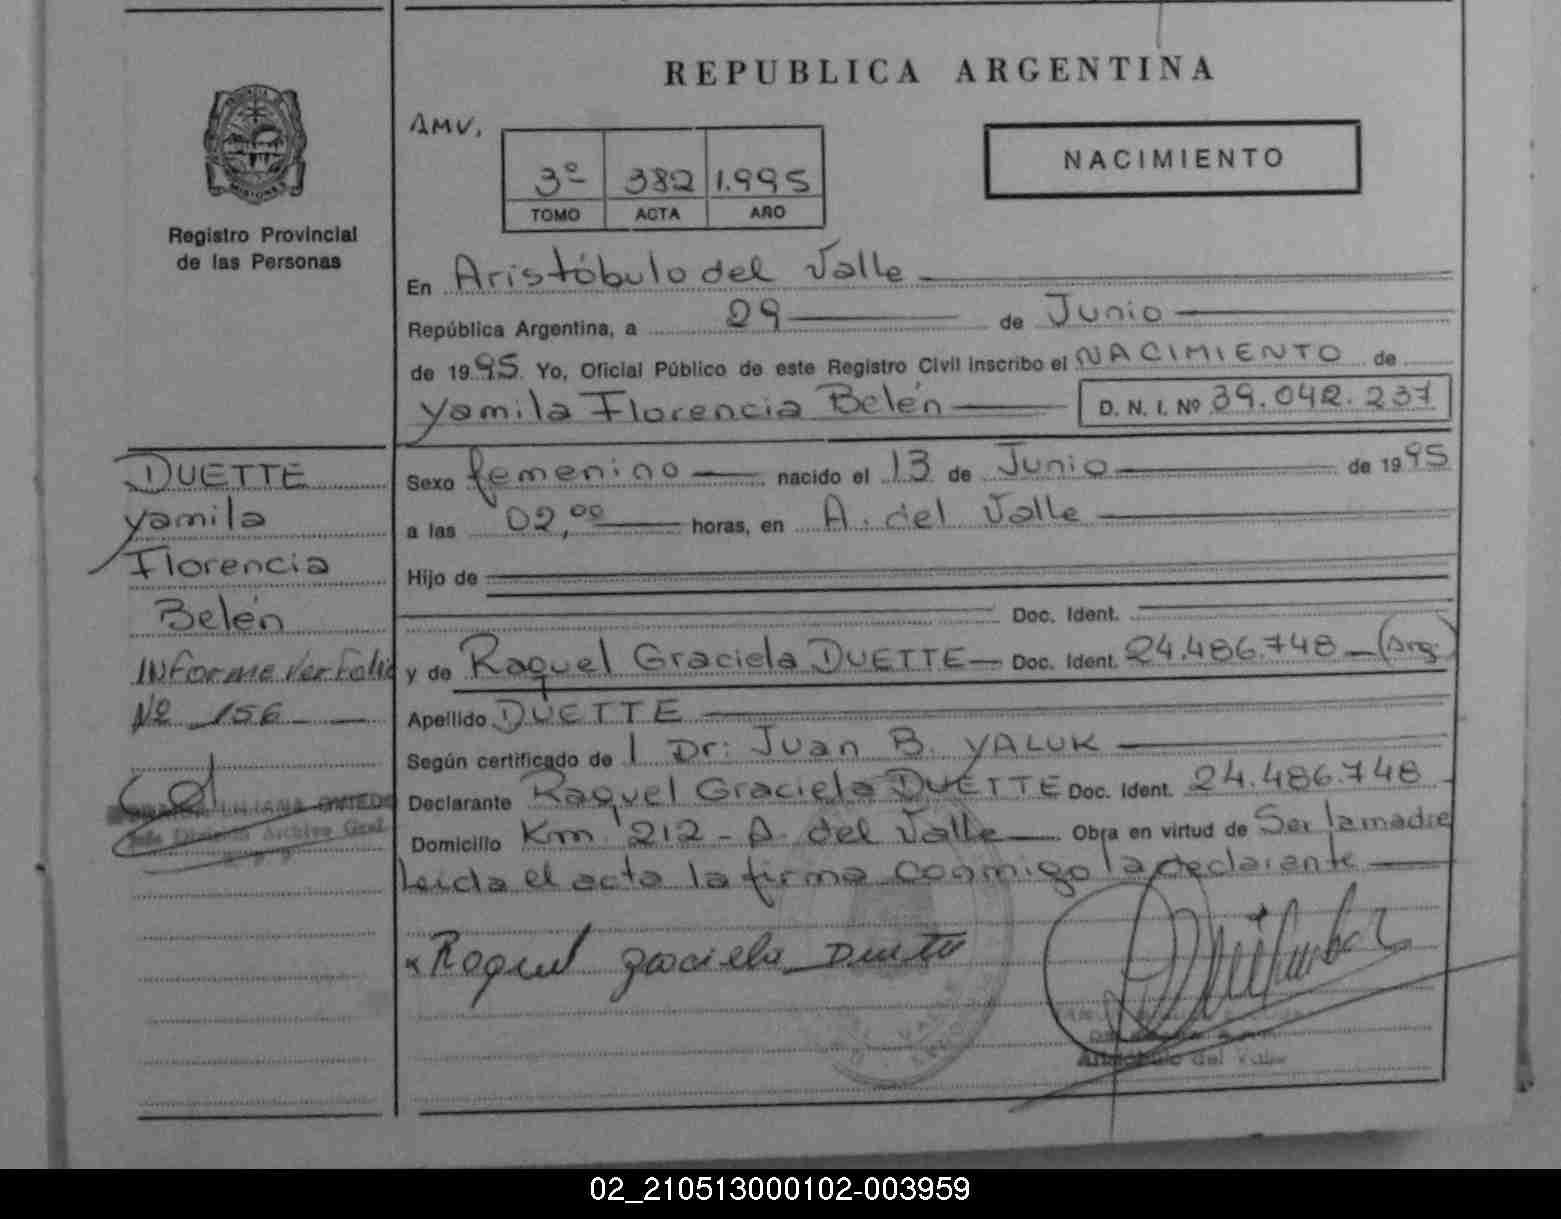 REPUBLICA ARGENTINA
PROVINCIA
MISIONES
Registro Provincial
de las Personas
AMV.
3º 382 1.995
TOMO ACTA AÑO
NACIMIENTO
En Aristóbulo del Valle
República Argentina, a 29 de Junio
de 1995. Yo, Oficial Público de este Registro Civil inscribo el NACIMIENTO de
Yamila Florencia Belén D. N. I. Nº 39.042.237
DUETTE
Yamila
Florencia
Belén
INforme Ver Folio
Nº 156
Sexo femenino nacido el 13 de Junio de 1995
a las 02,00 horas, en A. del Valle
Hijo de
Doc. Ident.
y de Raquel Graciela DUETTE Doc. Ident. 24.486.748 (Arg.)
Apellido DUETTE
Según certificado de Dr: Juan B. YALUK
Declarante Raquel Graciela DUETTE Doc. Ident. 24.486.748
Domicilio Km 212 - A. del Valle Obra en virtud de Ser la madre
Leída el acta la firma conmigo la declarante
LILIANA OVIEDO
Jefe División Archivo Gral.
x Raquel graciela Duette
Aristóbulo del Valle
02_210513000102-003959